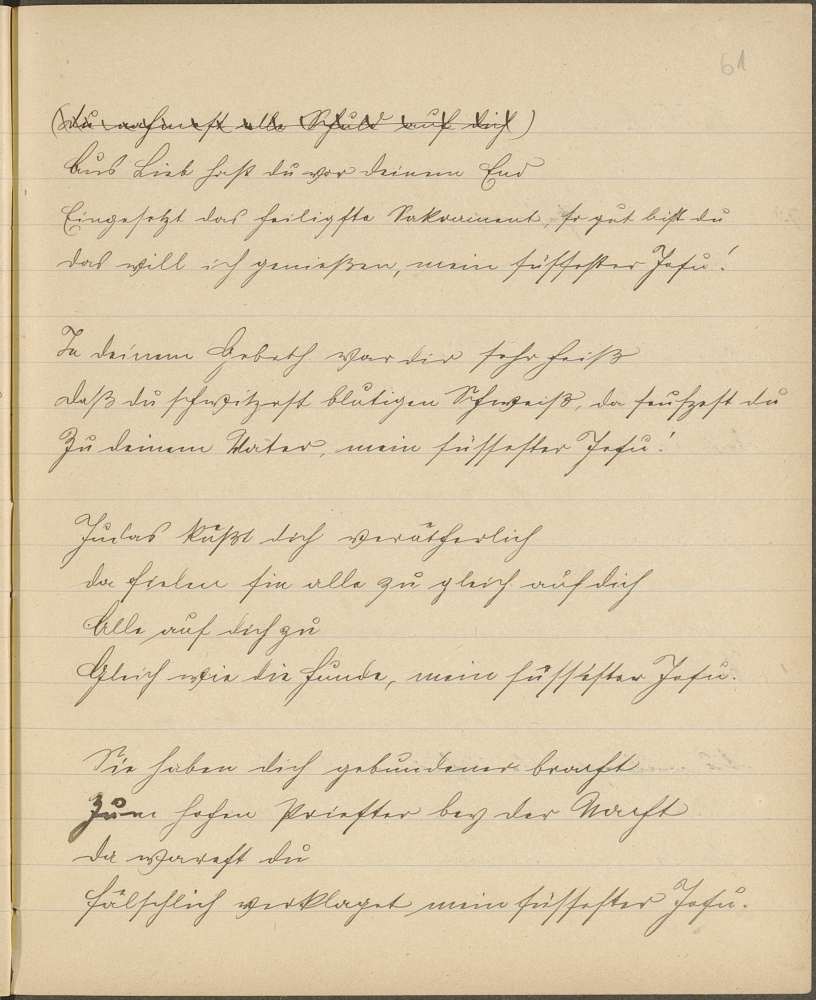 61
(du nahmest alle Schuld auf dich)
Aus Lieb hast du vor deinem End
Eingesetzt das heiligste Sakrament, so gut bist du
das will ich genießen, mein süssester Jesu!
In deinem Gebeth war dir sehr heiß
daß du schwitzest blutigen Schweiß, da seufzest du
Zu deinem Vater, mein süssester Jesu!
Judas küßt dich verätherlich
da fielen sie alle zu gleich auf dich
Alle auf dich zu
Gleich wie die Hunde, mein süssester Jesu.
Sie haben dich gebundener bracht
Zum hohen Priester bey der Nacht
da warest du
fälschlich verklaget mein süssester Jesu.